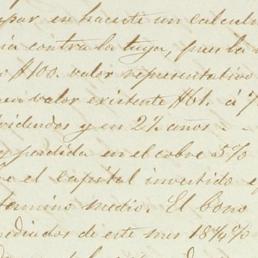 upar en hacerte un calculo
ia contra la tuya, pues la
$100. valor representativo
en valor existente $61. á 7
videndos y en 2½ años.
perdida en el cobre 5%
e el capital invertido e
termino medio. El bono
mediados de este mes 18¾%